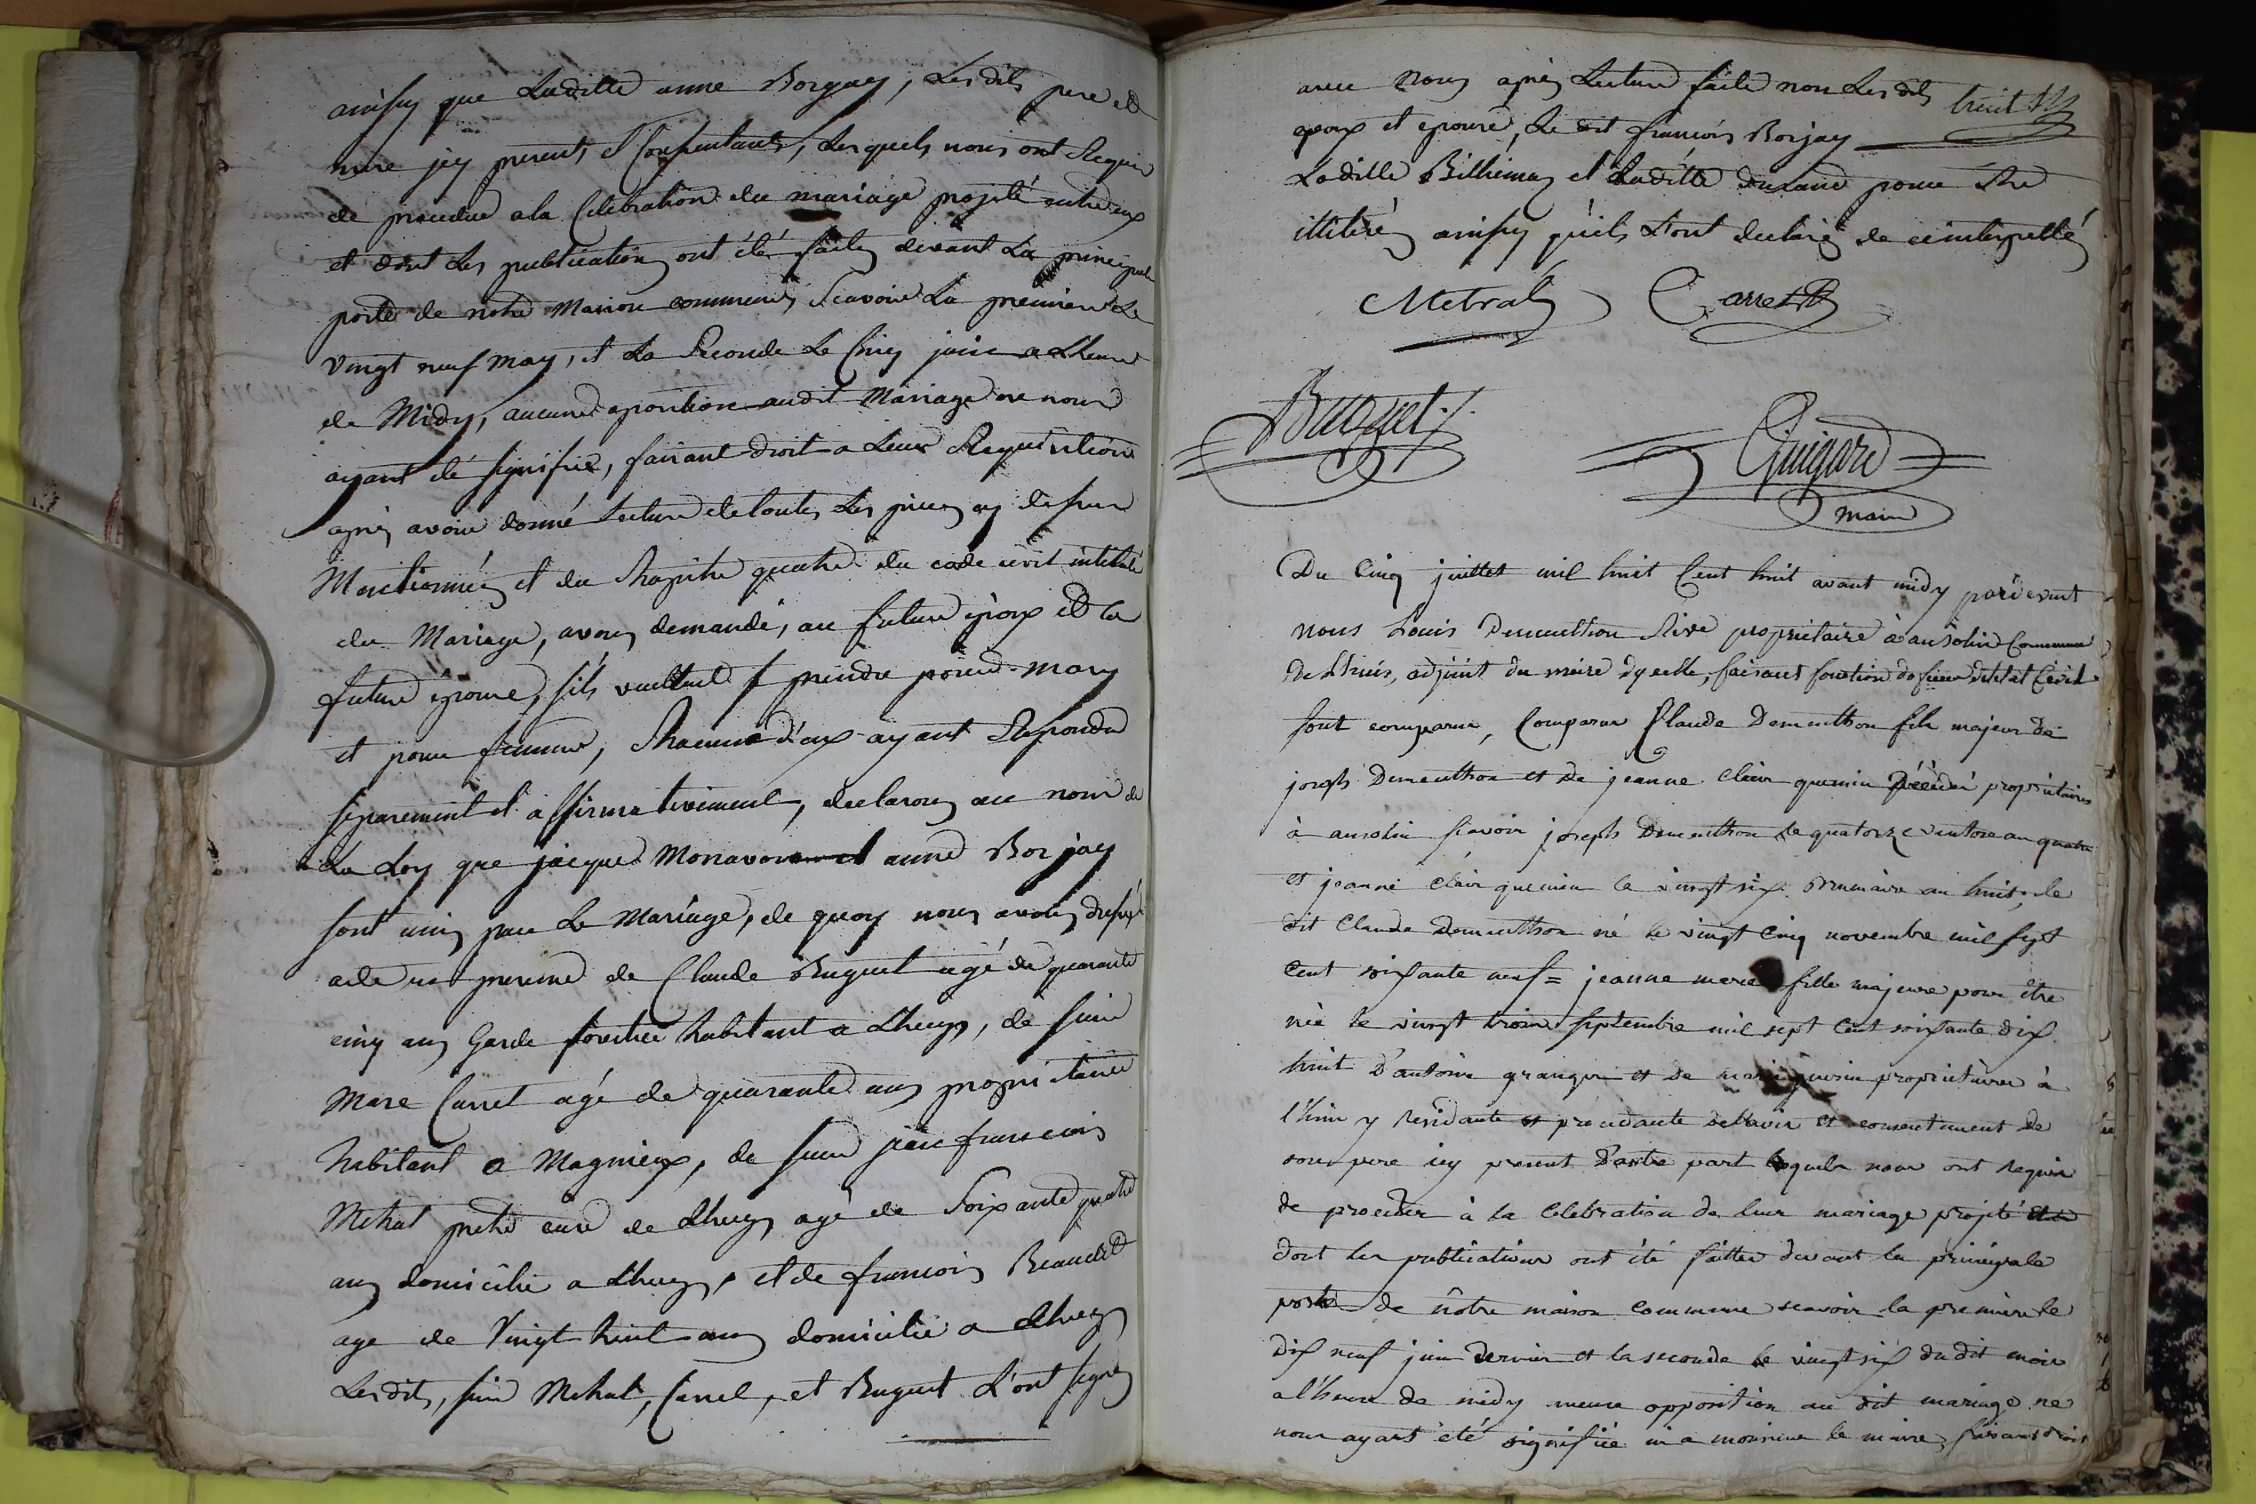 ainsy que Laditte anne Borjay, Lesdits pere et
mere jcy presents et Consentants, Lesquels nous ont Requis
de proceder a la Celebration du mariage projeté entre eux
et dont les publications ont été faites devant La principale
porte de notre Maison commune, Scavoir La premiere Le
vingt neuf may, et La Seconde Le Cinq juin a Lheure
de Midy, aucune oposition audit Mariage ne nous
ayant été signifiée, faisant droit a Leur Requisition
après avoir donné Lecture de toutes Les pieces cy dessus
Mentionnées et du Chapitre quatre du code civil intitulé
du Mariage, avons demandé, au future époux et la
future épouse, s'ils veullent se prendre pour mary
et pour femme, Chacune d'eux ayant Repondu
séparement et affirmativement, declarons au nom de
La Loy que jacque Monavon et anne Borjay
sont unis par Le Mariage, de quoy nous avons dressé
acte en presence de Claude Buguet agé de quarante
cinq ans Garde forestier habitant a Lhuys, de sieur
Marc Carret agé de quarante ans propriétaire
habitant a Magnieux, de sieur jean francois
Metral pretre curé de Lhuys agé de Soixante quatre
ans domicilié a Lhuys, et de francois
age de Vingt huit ans domicilié a Lhuys
Lesdits, sieur Metral, Carret, et Buguet L'ont signés
avec Nous après Lecture faite non Lesdits
epoux et epouse, Le dit francois Borjay
Laditte Billiemaz et Laditte Durand pour être
illitéré, ainsy qu'ils L'ont declarés de ce interpellé
huit
Metral Carret
Buguet
Guigard
maire
Du Cinq juillet mil huit Cent huit avant midy pardevant
nous Louis Demeulthon Sive propriétaire à ansolin Commune
De Lhuis, adjoint du maire d'ycelle, faisant fonction d'officier de l'état Civil
sont comparus, Comparu Claude Demeulthon fils majeur de
joseph Demeulthon et de jeanne Clair quenin décédés propriétaires
à ansolin scavoir joseph Demeulthon le quatorze ventose an quatre
et jeanne Clair quenin le vingt six Brumaire an huit, le
dit Claude Demeulthon né le vingt Cinq novembre mil sept
Cent soixante neuf = jeanne marie fille majeure pour être
née le vingt trois septembre mil sept Cent soixante dix
huit D'antoine granger et de marie propriétaires à
l'huis y residante et procedante de l'avis et consentement de
son pere icy present D'autre part lequels nous ont requis
de proceder à la Celebration de leur mariage projeté et de
dont les publications ont été faittes devant la principale
porte de nôtre maison Commune scavoir la premiere le
dix neuf juin dernier et la seconde le vingt six du dit mois
a l'heure de midy aucune opposition au dit mariage ne
nous ayant été signifiée ni a monsieur le maire, faisant droit